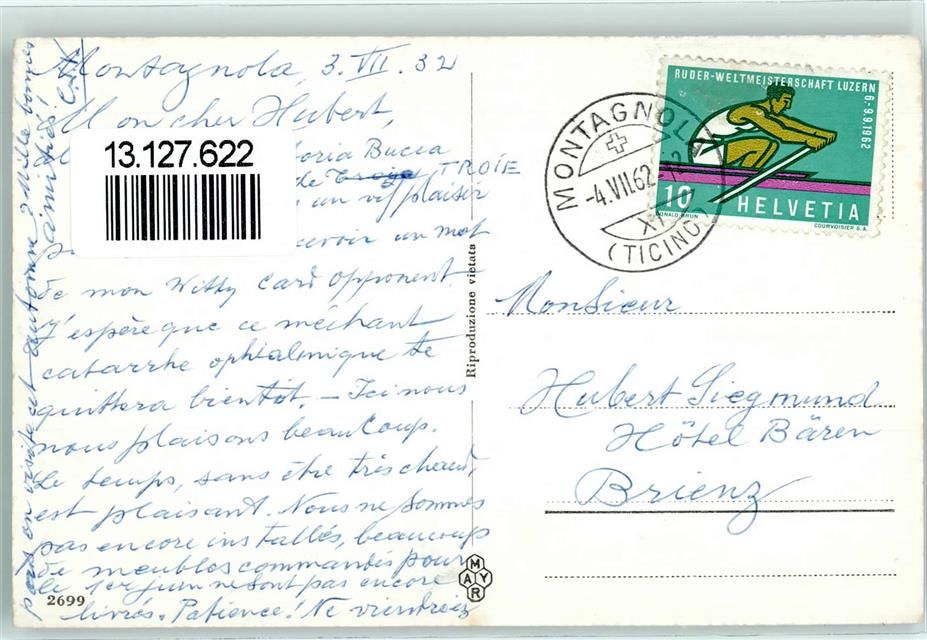 Montagnola, 3. VII. 32
Mon cher Hubert,
13.127.622
Bucca
de Troye TROIE
un vif plaisir
un mot
de mon Witty Card opponent.
J'espère que ce méchant
catarrhe ophtalmique te
quittera bientôt. — Ici nous
nous plaisons beaucoup.
Le temps, sans être très chaud,
est plaisant. Nous ne sommes
pas encore installés, beaucoup
de meubles commandés pour
le 1er juin ne sont pas encore
livrés. Patience! Ne viendriez
pas en visite cet automne? Mille bonnes
amitiés
2699
Riproduzione vietata
MAYR
MONTAGNOLA
-4.VII.62-12
XI
(TICINO)
RUDER-WELTMEISTERSCHAFT LUZERN
6.-9.9.1962
10 HELVETIA
DONALD BRUN COURVOISIER S.A.
Monsieur
Hubert Siegmund
Hôtel Bären
Brienz